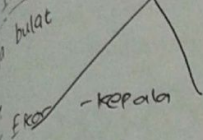 bulat
Ekor
-kepala